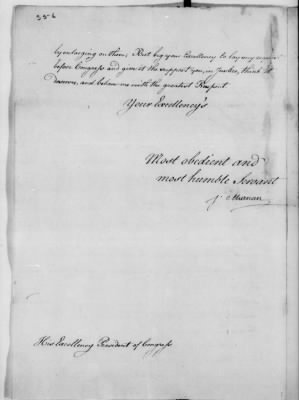 556
by enlarging on them; But beg your Excellency to lay my
before Congress and give it the support you, in Justice, think it
deserves, and believe me with the greatest Respect
Your Excellency's
Most obedient and
most humble Servant
J
His Excellency President of Congress